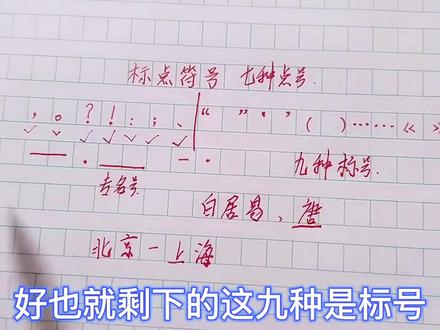 标点符号 七种点号.
，。？！：；、“ ”‘ ’（ ）……《 》
—— . ___ — · 九种标号.
专名号
白居易、唐
北京—上海
好也就剩下的这九种是标号